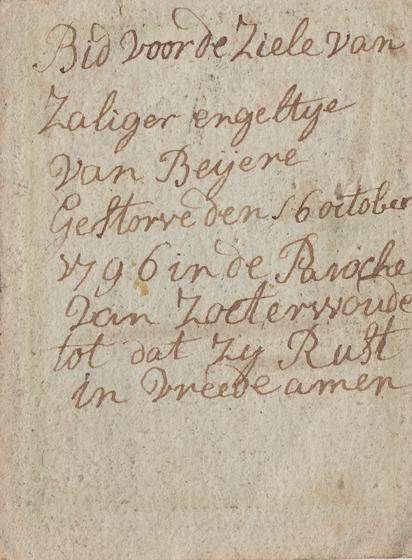 Bid voor de Ziele van
Zaliger engeltye
van Beyere
Gestorve den 16 october
1796 in de Paroche
van Zoeterwoude
tot dat Zy Rust
in vreede amen